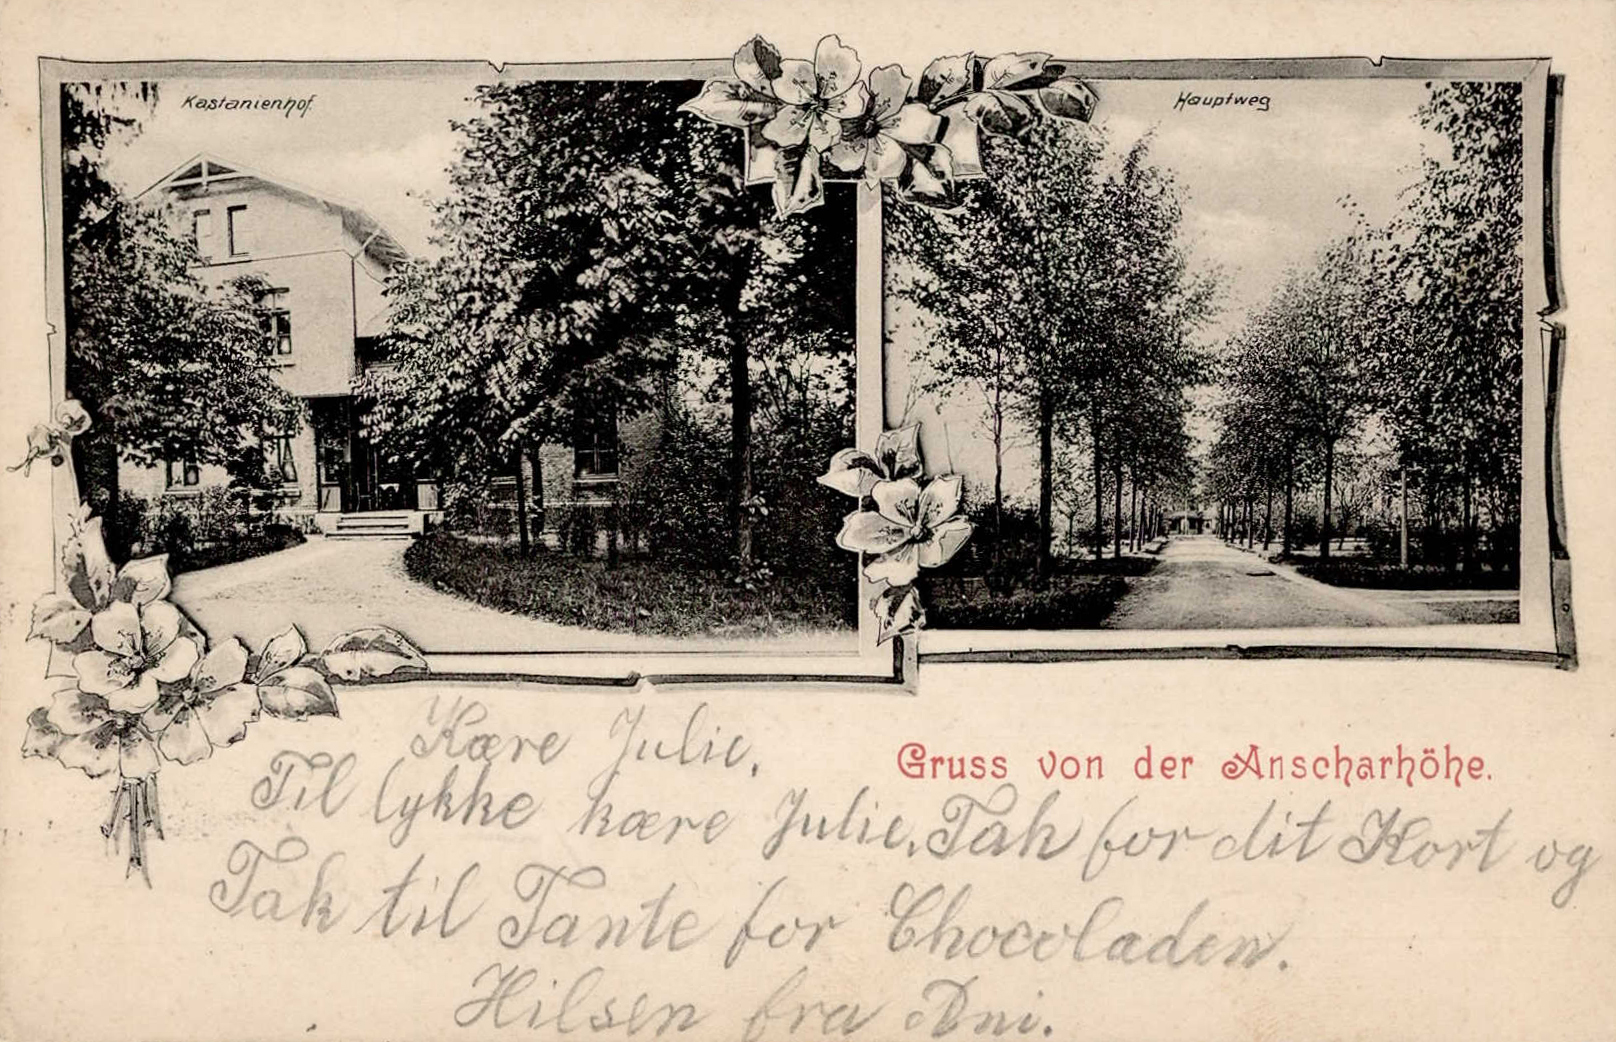 Kastanienhof.
Hauptweg
Gruss von der Anscharhöhe.
Kære Julie,
Til lykke kære Julie, Tak for dit Kort og
Tak til Tante for Chocoladen.
Hilsen fra